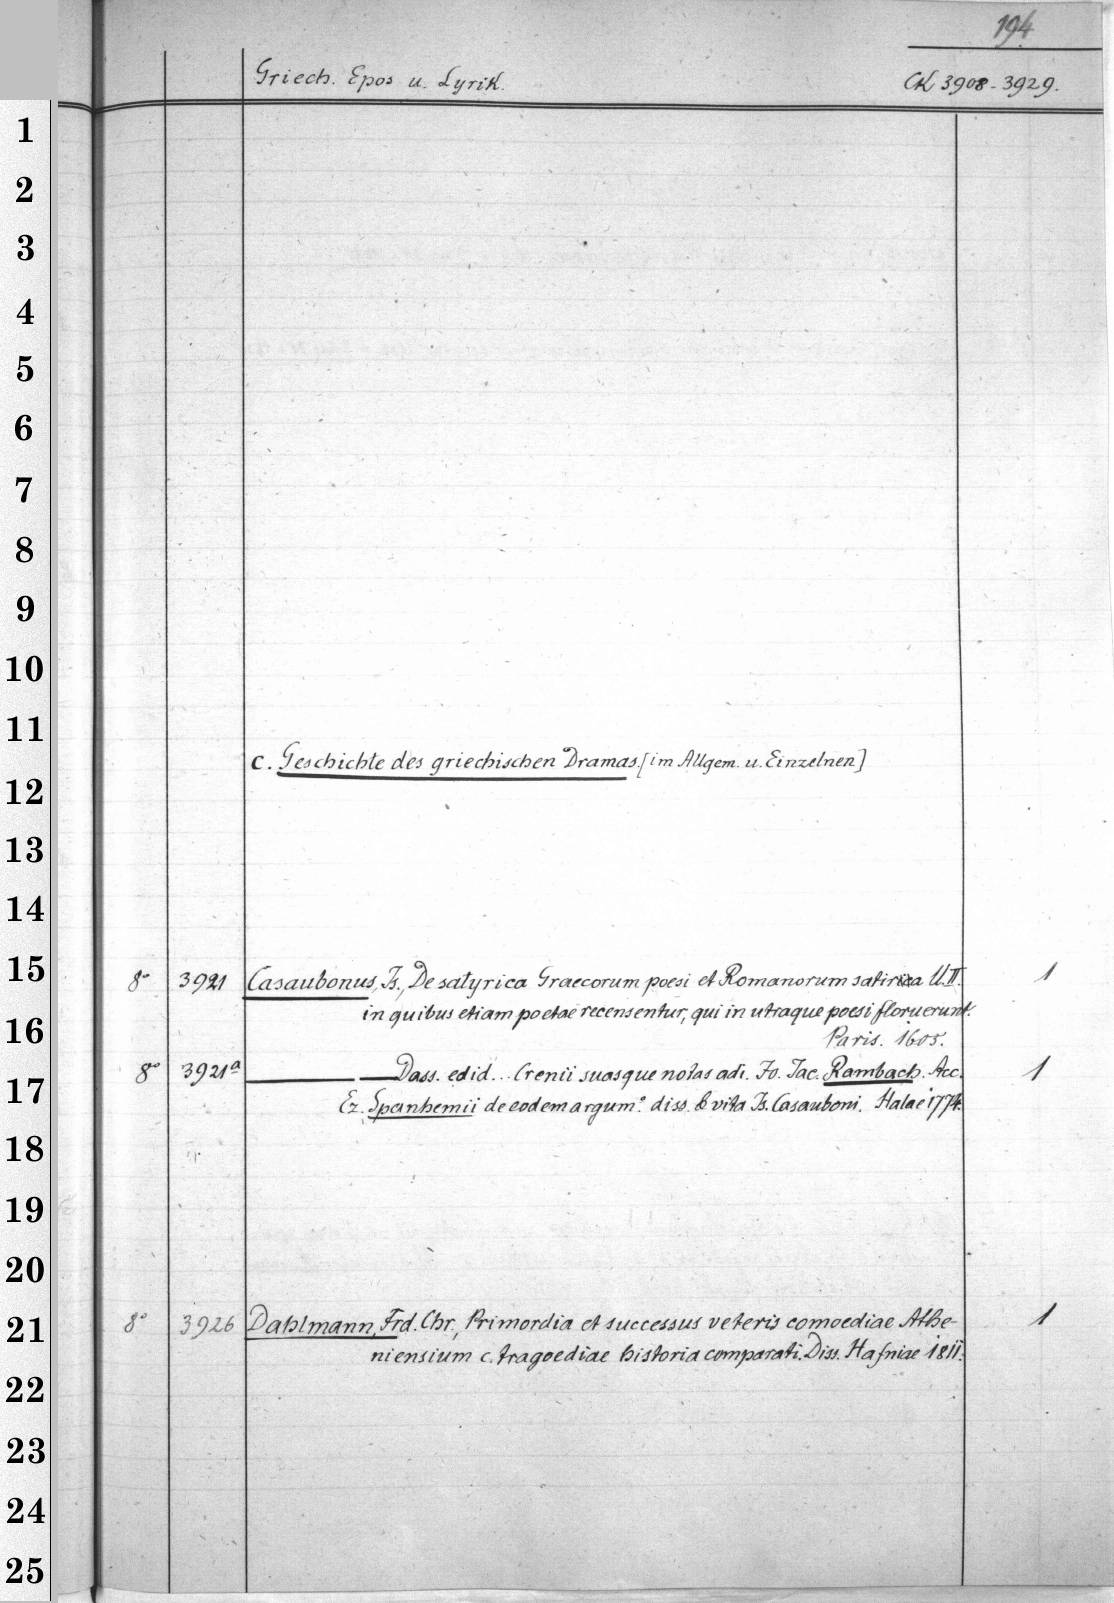 194
Griech. Epos u. Lyrik.
CK 3908-3929.
1
2
3
4
5
6
7
8
9
10
11
c. Geschichte des griechischen Dramas. [im Allgem. u. Einzelnen]
12
13
14
15
8° 3921 Casaubonus, Is., De satyrica Graecorum poesi et Romanorum satirica ll. II. 1
in quibus etiam poetae recensentur, qui in utraque poesi floruerunt.
16
Paris. 1605.
8° 3921a Dass. edid... Crenii suasque notas adi. Jo. Jac. Rambach. Acc. 1
17
Ez. Spanhemii de eodem argumo. diss. & vita Is. Casauboni. Halae 1774.
18
19
20
21
8° 3926 Dahlmann, Frd. Chr., Primordia et successus veteris comoediae Athe- 1
niensium c. tragoediae historia comparati. Diss. Hafniae 1811.
22
23
24
25